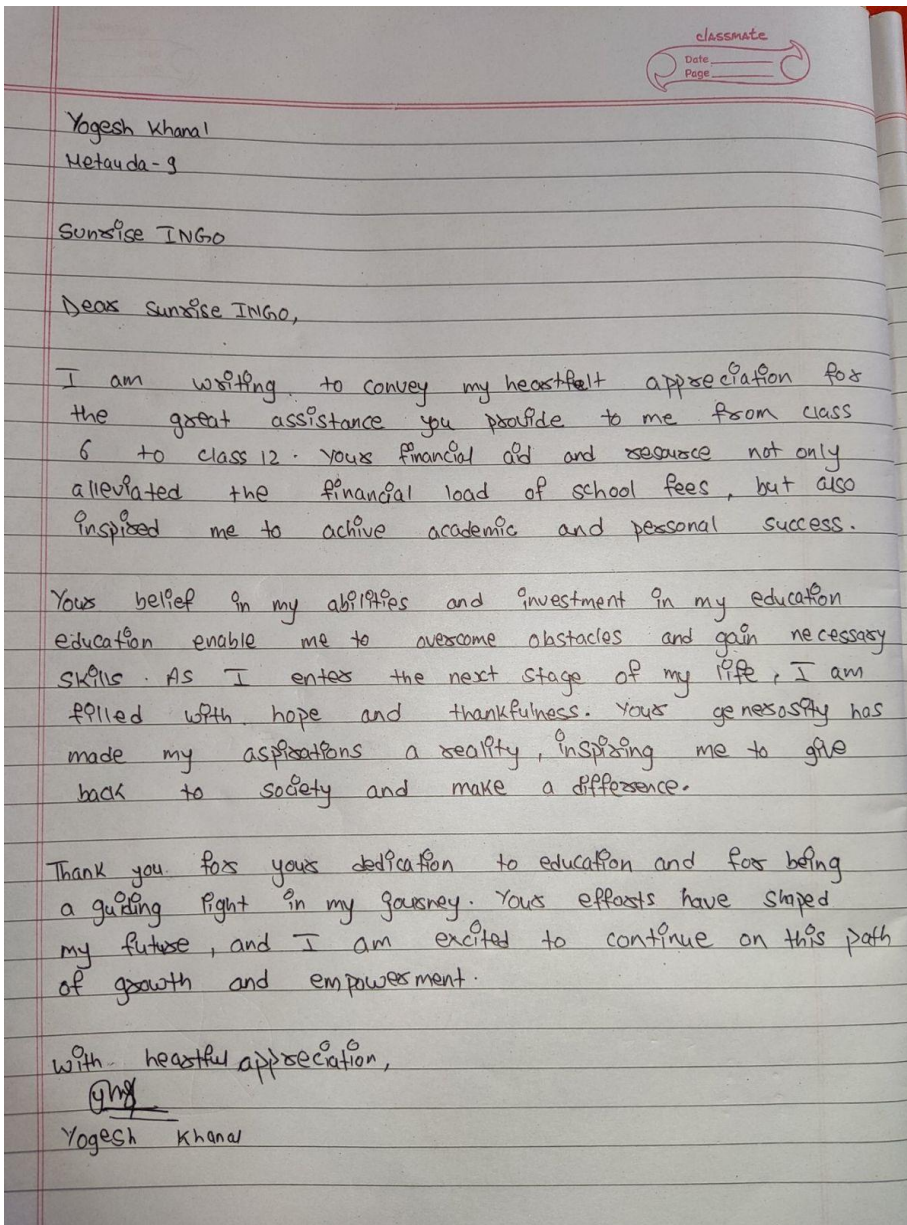 classmate
Date
Page
Yogesh Khanal
Hetauda-9
Sunrise INGO
Dear Sunrise INGO,
I am writing to convey my heartfelt appreciation for
the great assistance you provide to me from class
6 to class 12. Your financial aid and resource not only
alleviated the financial load of school fees, but also
inspired me to achive academic and personal success.
Your belief in my abilities and investment in my education
education enable me to overcome obstacles and gain necessary
skills. As I enter the next stage of my life, I am
filled with hope and thankfulness. Your generosity has
made my aspirations a reality, inspiring me to give
back to society and make a difference.
Thank you for your dedication to education and for being
a guiding light in my journey. Your efforts have shaped
my future, and I am excited to continue on this path
of growth and empowerment.
With heartful appreciation,
Yogesh Khanal